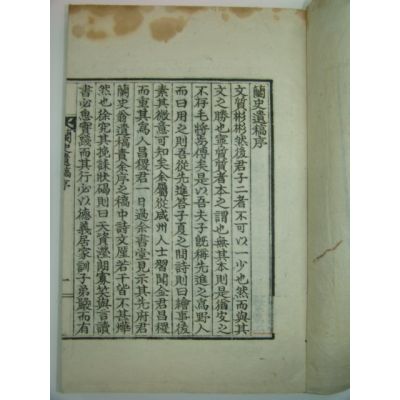 蘭史遺稿序
文質彬彬然後君子二者不可以一少也然而與其
文之勝也寧質質者本之謂也無其本則是猶皮之
不存毛將焉傅矣是以吾夫子既稱先進之為野人
而曰用之則吾從先進答子夏之問詩則曰繪事後
素其微意可知矣余屬從咸州人士習聞金君昌稷
而重其寓人焉稷君一日過余書堂見示其先府君
蘭史翁遺稿責余序之稿中詩文厪若干皆不甚燁
然也徐究其挽誄狀碣則曰天資澄朗寡笑與言讀
書必惠實踐而其行必以德義居家訓子弟嚴而有
蘭史遺稿序
一